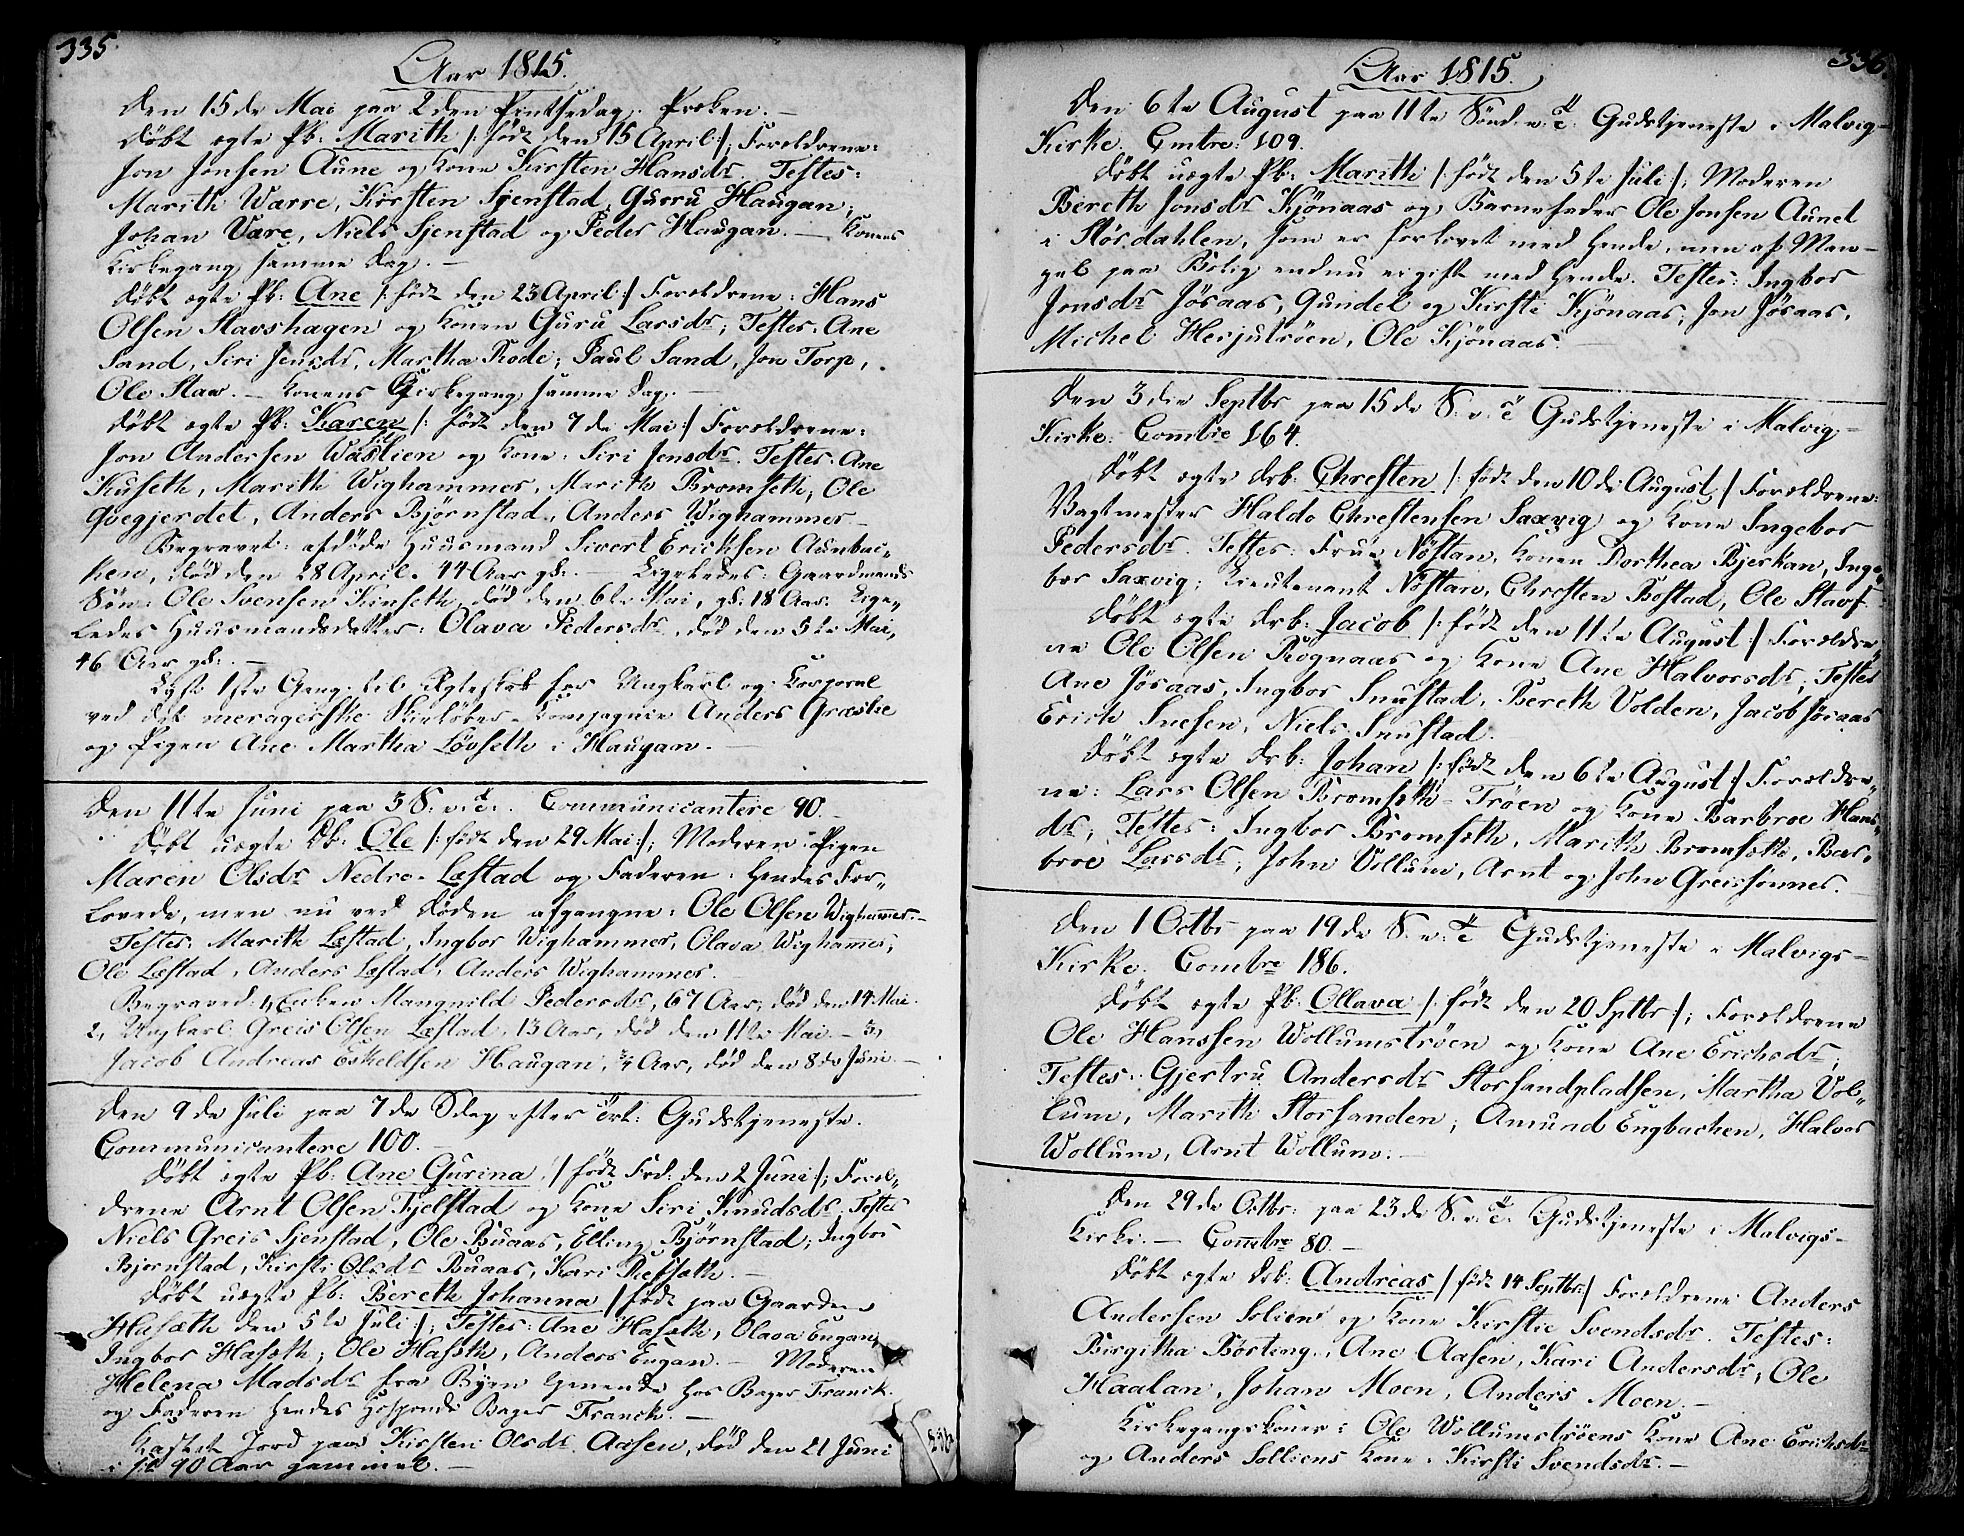 335.
Aar 1815.
Den 15de Mai paa 2den Pintsedag. Præken. —
Døbt ægte Pb: Marith /: født den 15 April :/, Forældrene:
Jon Jonsen Aune og Kone Kirsten Hansdr. Testes:
Marith Warre, Kirsten Sjenstad, Gurru Haugan;
Johan Vare, Niels Sjenstad og Peder Haugan. — Konens
Kirkegang samme Dag. —
Døbt ægte Pb: Ane /: født den 23 April :/ Forældrene: Hans
Olsen Stavshagen og Konen Guru Larsdr; Testes: Ane
Sand, Siri Jensdr, Martha Rode; Paul Sand, Jon Torp,
Ole Staw. — Konens Kirkegang samme Dag. —
Døbt ægte Pb: Karen /: født den 7de Mai :/ Forældrene:
Jon Andersen Wastlien og Kone: Siri Jensdr. Testes: Ane
Kuseth, Marith Wighammer, Marith Bromseth, Ole
Qvegjerdet, Anders Bjørnstad, Anders Wighammer. —
Begravet: afdøde Huusmand Sivert Ericksen Aunbac-
ken, død den 28 April. 44 Aar gl: — Ligeledes: Gaardmands
Søn: Ole Svensen Kinseth, død den 6te Mai, gl: 18 Aar. Lige-
ledes Huusmandsdatter: Olava Pedersdr, død den 5te Mai,
46 Aar gl: —
Lyst 1ste Gang til Ægteskab for Ungkarl og Corporal
ved det meragerske Skieløber-Compagnie Anders Græslie
og Pigen Ane Martha Løvseth i Haugan. —
Den 11te Juni paa 3 S. e. Tr: Communicantere 90. —
Døbt uægte Db: Ole /: født den 29 Mai :/, Moderen: Pigen
Maren Olsdr Nedre-Læstad og Faderen: Hendes For-
lovede, men nu ved Døden afgangne: Ole Olsen Wighammer. —
Testes: Marith Læstad, Ingbor Wighammer, Olava Wighammer,
Ole Læstad, Anders Læstad, Anders Wighammer.
Begraved: 1, Enken Mangnild Pedersdr, 67 Aar, død den 14 Mai.
2, Ungkarl Greis Olsen Læstad, 13 Aar, død den 11te Mai. — 3,
Jacob Andreas Eskeldsen Haugan, ¾ Aar, død den 8de Juni. —
Den 9de Juli paa 7de Sdag efter Trt: Gudstjeneste.
Communicantere 100. —
Døbt ægte Pb: Ane Gurina /: født Frd: den 2 Juni :/, Foræl-
drene Arnt Olsen Fjelstad og Kone Siri Knudsdr. Testes
Niels Greis Sjenstad, Ole Buaas, Elling Bjørnstad; Ingbor
Bjørnstad, Kirsti Olsdr Buaas, Kari
Døbt uægte Pb: Bereth Johanna /: født paa Gaarden
Hasæth den 5te Juli :/, Testes: Ane Hasæth, Olava Eugan,
Ingbor Hasæth; Ole Hasæth, Anders Eugan. — Moderen
Helena Madsdr fra Byen tjenende hos Bager Franck.
og Faderen Hendes Hosponde Bager Franck. —
Kastet Jord paa Kirsten Olsdr Aasen, død den 21 Juni
90 Aar gammel. —
336.
Aar 1815.
Den 6te August paa 11te Sønd. e. Tr. Gudstjeneste i Malvig-
Kirke. Cmtre: 109.
Døbt uægte Pb: Marith /: født den 5te Juli :/, Moderen
Bereth Jonsdr Kjønaas og Barnefader Ole Jonsen Aunet
i Størdahlen, som er forlovet med Hende, men af Man-
gel paa Bolig endnu ei gift med Hende. Testes: Ingbor
Jonsdr Jøsaas, Gundel og Kirsti Kjønaas; Jon Jøsaas,
Michel Herjulsøen, Ole Kjønaas.
Den 3die Septbr paa 15de S. e. Tr Gudstjeneste i Malvig-
Kirke: Commtre 164.
Døbt ægte Drb: Chresten /: født den 10de August :/ Forældrene:
Vagtmester Haldo Chrestensen Saxvig og Kone Ingebor
Pedersdr. Testes: Frue Nøstan, Konen Dorthea Bjerkan, Inge-
bor Saxvig; Lieutenant Nøstan, Chresten Bostad, Ole Stavs-
Døbt ægte Drb: Jacob /: født den 11te August :/ Forældre-
ne Ole Olsen Rognaas og Kone Ane Halvorsdr; Testes
Ane Jøsaas, Ingbor Snustad, Bereth Volden, Jacob Jøsaas
Erich Snesen, Niels Snustad.
Døbt ægte Drb: Johan /: født den 6te August :/ Forældre-
ne: Lars Olsen Bromseth-Trøen og Kone Barbroe Hans-
dr; Testes: Ingbor Bromseth, Marith Bromseth, Bar-
broe Larsdr; John Vollum, Arnt og John Greissønner.
Den 1 Octbr paa 19de S. e. Tr Gudstjeneste i Malvigs-
Kirke. Combre 186.
Døbt ægte Pb: Ollava /: født den 20 Septbr :/; Forældrene
Ole Hanssen Wollumstrøen og Kone Ane Erichsdr;
Testes: Gjertru Andersdr Storsandpladsen, Martha Vol-
lum, Marith Storsanden; Amund Engbachen, Halvor
Wollum, Arnt Wollum. —
Den 29de Octbr: paa 23de S. e. Tr. Gudstjeneste i Malvigs-
Kirke. — Combre 80. —
Døbt ægte Drb: Andreas /: født 14 Septbr :/ Forældrene Anders
Andersen Solien og Kone Kirstie Svendsdr. Testes:
Birgitha Børting, Ane Aasen, Kari Andersdr; Ole
Haalan, Johan Moen, Anders Moen. —
Kirkegangskoner: Ole Wollumstrøens Kone Ane Erichsdr
og Anders Solliens Kone: Kirsti Svendsdr. —